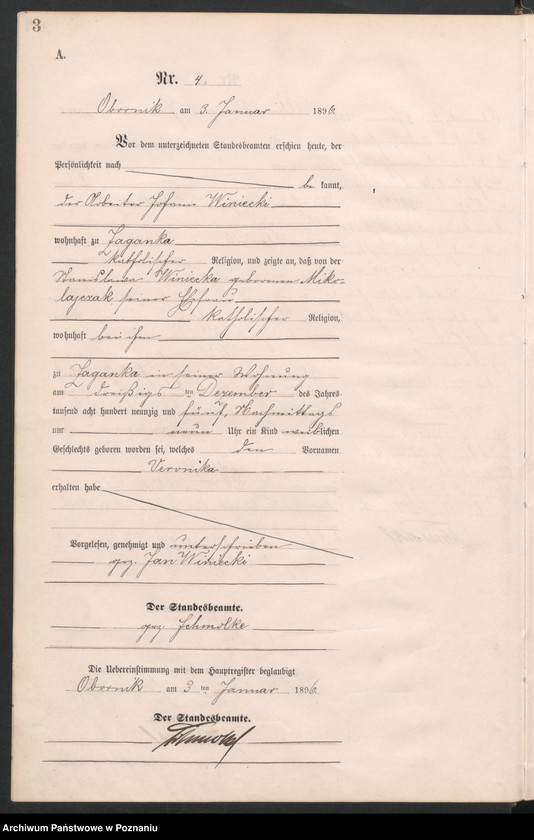 3
A.
Nr. 4.
Obornik am 3. Januar 1896.
Vor dem unterzeichneten Standesbeamten erschien heute, der
Persönlichkeit nach
be kannt,
der Arbeiter Johann Winiecki
wohnhaft zu Zaganka
katholischer Religion, und zeigte an, daß von der
Stanislawa Winiecka geborenen Miko-
lajczak seiner Ehefrau
katholischer Religion,
wohnhaft bei ihm
zu Zaganka in seiner Wohnung
am dreißigsten ten Dezember des Jahres
tausend acht hundert neunzig und fünf, Nachmittags
um neun Uhr ein Kind weiblichen
Geschlechts geboren worden sei, welches den Vornamen
Veronika
erhalten habe
Vorgelesen, genehmigt und unterschrieben
gez. Jan Winiecki
Der Standesbeamte.
gez. Schmolke
Die Uebereinstimmung mit dem Hauptregister beglaubigt
Obornik am 3 ten Januar 1896.
Der Standesbeamte.
Schmolke
Archiwum Państwowe w Poznaniu